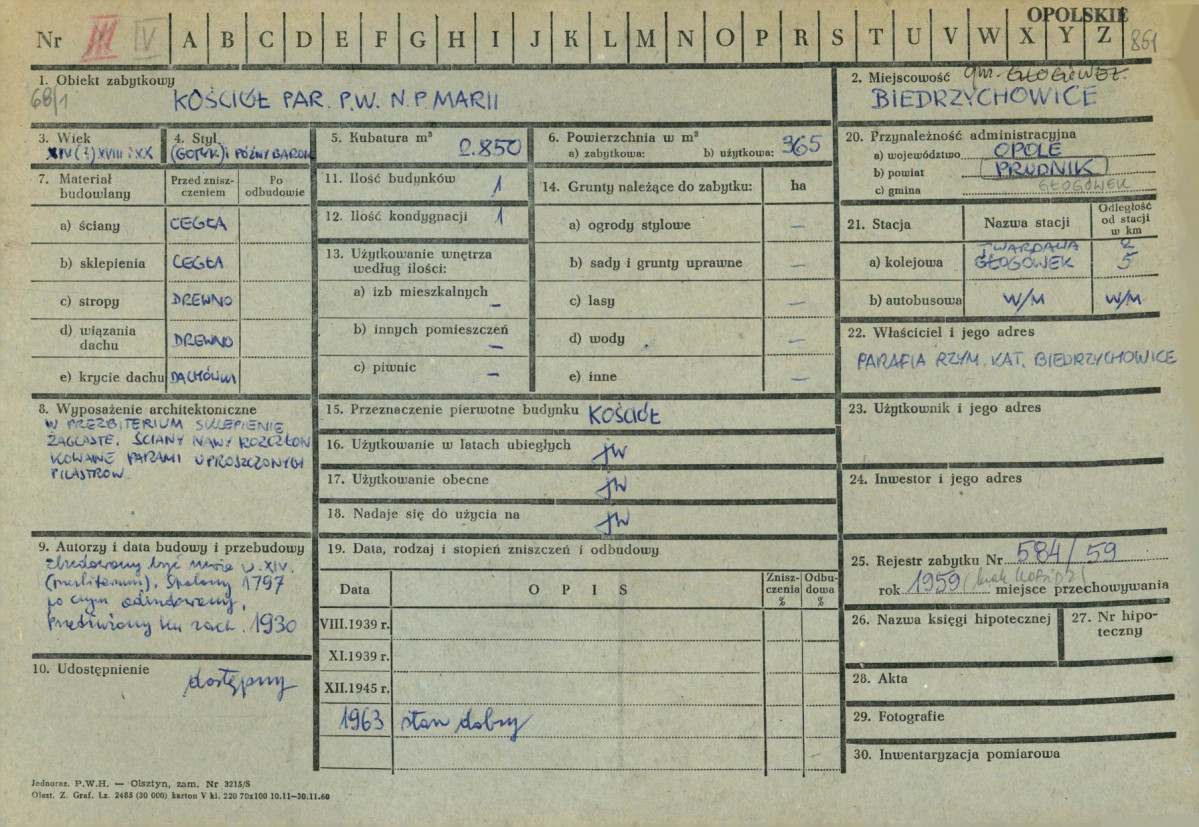 OPOLSKIE
Nr III IV A B C D E F G H I J K L M N O P R S T U V W X Y Z 861
1. Obiekt zabytkowy
68/1
KOŚCIÓŁ PAR. P.W. N.P. MARII
2. Miejscowość gm. GŁOGÓWEK
BIEDRZYCHOWICE
3. Wiek
XIV (?) XVIII i XX
4. Styl
(GOTYK) i PÓŹNY BAROK
5. Kubatura m³ 2.850
6. Powierzchnia w m²
a) zabytkowa: b) użytkowa: 365
20. Przynależność administracyjna
a) województwo OPOLE
b) powiat PRUDNIK
c) gmina GŁOGÓWEK
7. Materiał budowlany
Przed zniszczeniem
Po odbudowie
a) ściany CEGŁA
b) sklepienia CEGŁA
c) stropy DREWNO
d) wiązania dachu DREWNO
e) krycie dachu DACHÓWKA
11. Ilość budynków 1
12. Ilość kondygnacji 1
13. Użytkowanie wnętrza
według ilości:
a) izb mieszkalnych –
b) innych pomieszczeń –
c) piwnic –
14. Grunty należące do zabytku: ha
a) ogrody stylowe –
b) sady i grunty uprawne –
c) lasy –
d) wody –
e) inne –
21. Stacja Nazwa stacji Odległość od stacji w km
TWARDAWA 2
a) kolejowa GŁOGÓWEK 5
b) autobusowa W/M W/M
22. Właściciel i jego adres
PARAFIA RZYM. KAT. BIEDRZYCHOWICE
8. Wyposażenie architektoniczne
W PREZBITERIUM SKLEPIENIE
ŻAGLASTE. ŚCIANY NAWY ROZCZŁON
KOWANE PARAMI UPROSZCZONYCH
PILASTRÓW.
15. Przeznaczenie pierwotne budynku KOŚCIÓŁ
16. Użytkowanie w latach ubiegłych jw
17. Użytkowanie obecne jw
18. Nadaje się do użycia na jw
23. Użytkownik i jego adres
24. Inwestor i jego adres
9. Autorzy i data budowy i przebudowy
zbudowany być może w. XIV.
(prezbiterium). Spalony 1797
po czym odbudowany,
Przedłużony ku zach. 1930
10. Udostępnienie
dostępny
19. Data, rodzaj i stopień zniszczeń i odbudowy
Data O P I S Zniszczenia % Odbudowa %
VIII.1939 r.
XI.1939 r.
XII.1945 r.
1963 stan dobry
25. Rejestr zabytku Nr 584/59
rok 1959 miejsce przechowywania
26. Nazwa księgi hipotecznej
27. Nr hipoteczny
28. Akta
29. Fotografie
30. Inwentaryzacja pomiarowa
Jednoraz. P.W.H. — Olsztyn, zam. Nr 3215/S
Olszt. Z. Graf. Lz. 2485 (30 000) karton V kl. 220 70x100 10.11—30.11.60